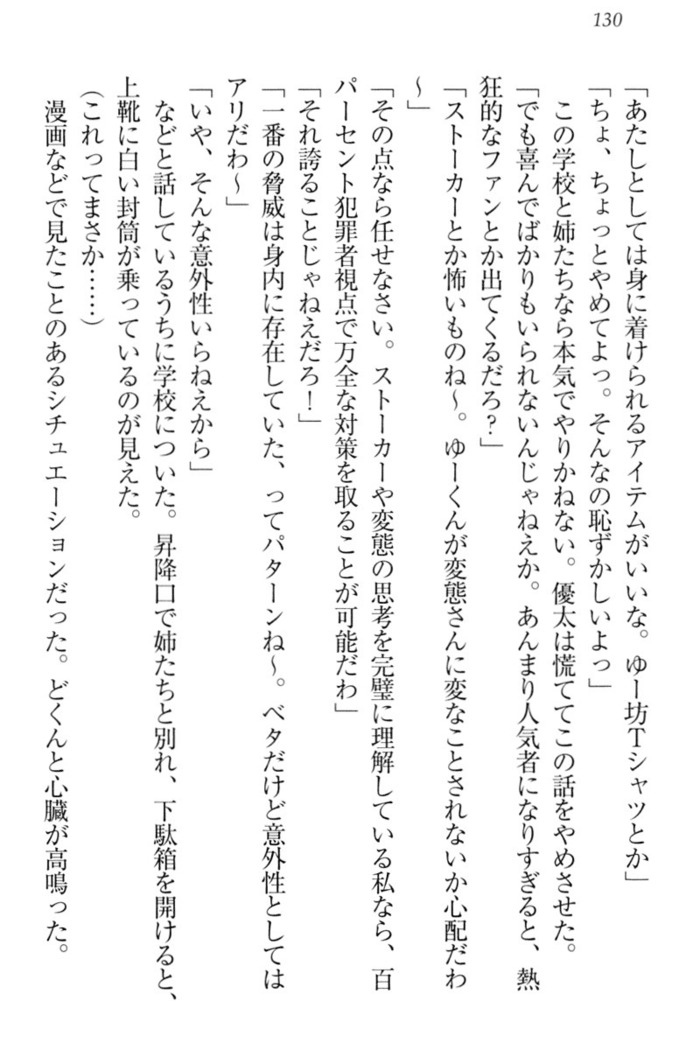 130
「あたしとしては身に着けられるアイテムがいいな。ゆー坊Tシャツとか」
「ちょ、ちょっとやめてよっ。そんなの恥ずかしいよっ」
　この学校と姉たちなら本気でやりかねない。優太は慌ててこの話をやめさせた。
「でも喜んでばかりもいられないんじゃねえか。あんまり人気者になりすぎると、熱
狂的なファンとか出てくるだろ？」
「ストーカーとか怖いものね～。ゆーくんが変態さんに変なことされないか心配だわ
～」
「その点なら任せなさい。ストーカーや変態の思考を完璧に理解している私なら、百
パーセント犯罪者視点で万全な対策を取ることが可能だわ」
「それ誇ることじゃねえだろ！」
「一番の脅威は身内に存在していた、ってパターンね～。ベタだけど意外性としては
アリだわ～」
「いや、そんな意外性いらねえから」
　などと話しているうちに学校についた。昇降口で姉たちと別れ、下駄箱を開けると、
上靴に白い封筒が乗っているのが見えた。
（これってまさか……）
　漫画などで見たことのあるシチュエーションだった。どくんと心臓が高鳴った。